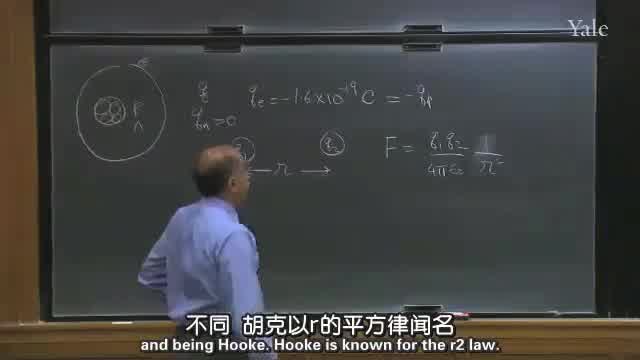 Yale
e
q
qe = -1.6 x 10^-19 C = -qp
P
n
qn = 0
q1
q2
r
F = q1q2/4πε0 1/r²
不同 胡克以r的平方律闻名
and being Hooke. Hooke is known for the r2 law.